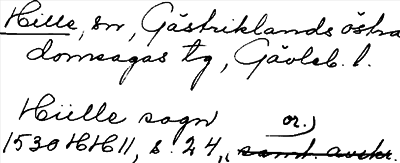 Hille, sn, Gästriklands östra
domsagas tg, Gävleb. l.
Hille sogn
1530 HH 11, s. 24, or.)
samt avskr.